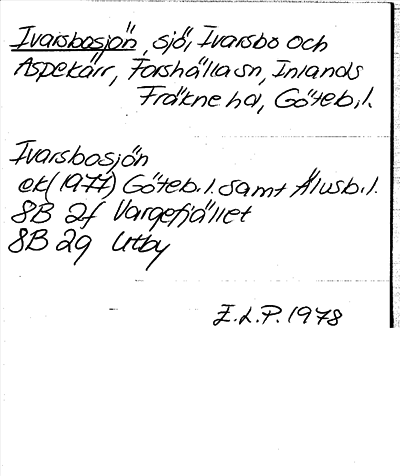 Ivarsbosjön, sjö, Ivarsbo och
Aspekärr, Forshälla sn, Inlands
Fräkne hd, Göteb.l.
Ivarsbosjön
ek(1977) Göteb.l. samt Älvsb.l.
8B 2f Vargefjället
8B 2g Utby
E.L.P. 1978